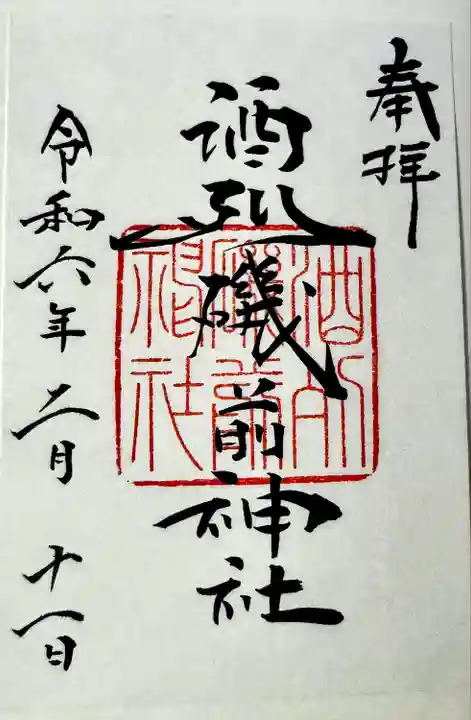 奉拝
酒列磯前神社
酒列
磯前
神社
令和六年二月十一日